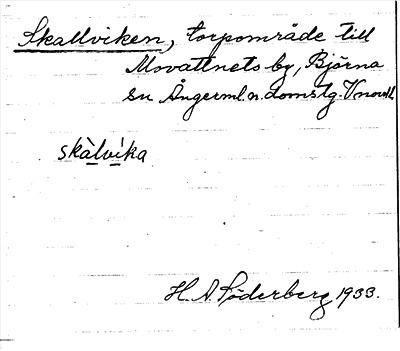 Skallviken, torpområde till
Movattnets by, Björna
sn Ångerml. n. domstg. Vnorrl.
skàlvìka
H. A. Söderberg 1933.